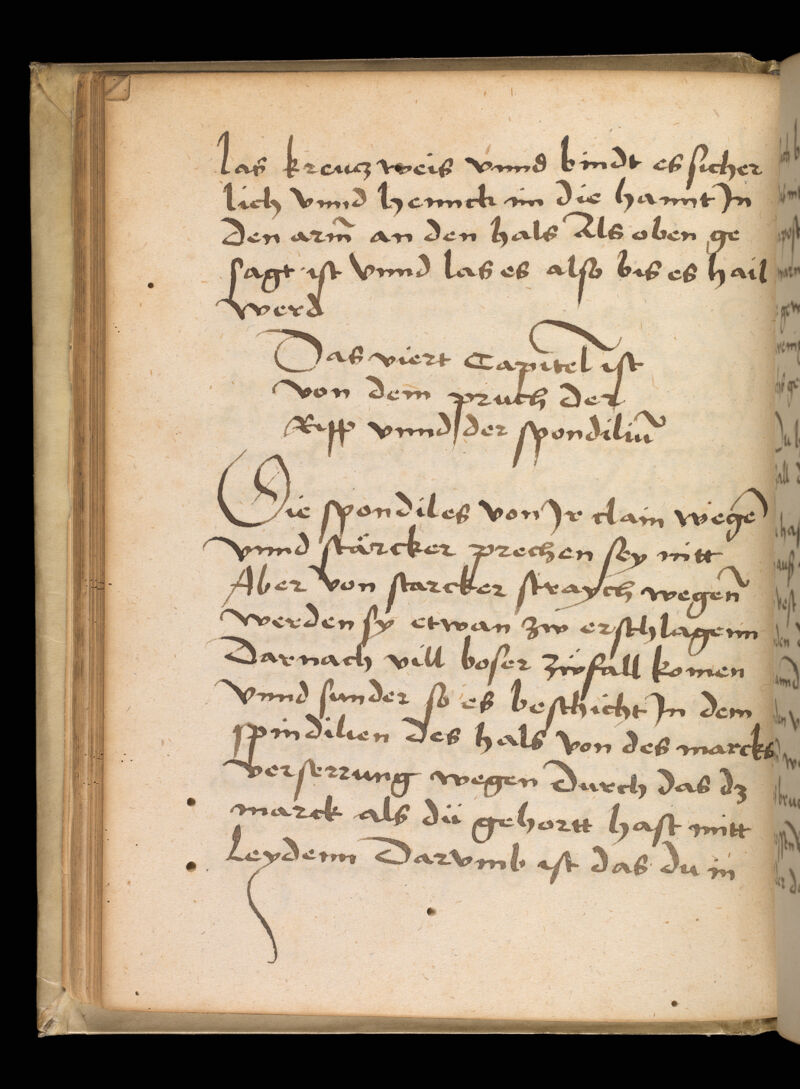 las kreucz weis vnnd bindt es sicher
lich vnnd hennck im die hannt In
den arm̄ an den hals Als oben ge
sagt ist vnnd las es also bis es hail
werd
Das viert Capitel ist
von dem pruch der
Ripp vnnd der spondiliū
Die spondiles von Ir clain wegē
vnnd stärcker prechen sey nitt
Aber von starcker straych wegen̄
werden sy etwan zw erschlagenn
Darnach vill boser zwfall komen
vnnd sunder so es beschicht In dem
spindilien des hals von des marcks
verserrung wegen Durch das dz
marck als dü gehortt hast mitt
Leydenn Darvmb ist das du in